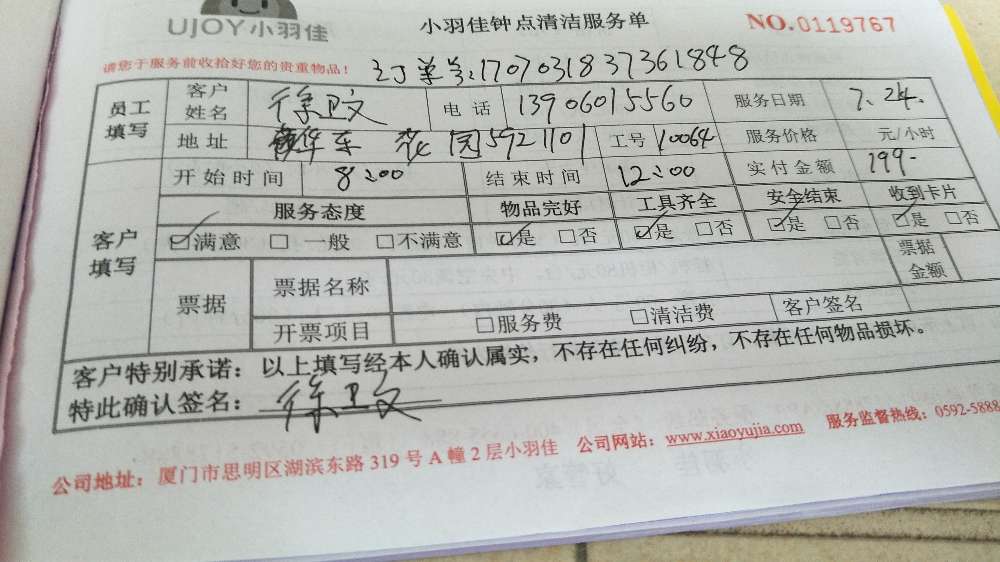 UJOY小羽佳
小羽佳钟点清洁服务单
NO.0119767
请您于服务前收拾好您的贵重物品！
订单号：1707031837361848
员工填写 客户姓名 徐卫文 电话 13906015560 服务日期 7.24.
地址 华东花园5921101 工号 10064 服务价格 元/小时
客户填写 开始时间 8:00 结束时间 12:00 实付金额 199-
服务态度 物品完好 工具齐全 安全结束 收到卡片
☑满意 □一般 □不满意 ☑是 □否 ☑是 □否 ☑是 □否 ☑是 □否
票据 票据名称 票据金额
开票项目 □服务费 □清洁费 客户签名
客户特别承诺：以上填写经本人确认属实，不存在任何纠纷，不存在任何物品损坏。
特此确认签名：徐卫文
公司地址：厦门市思明区湖滨东路319号A幢2层小羽佳 公司网站：www.xiaoyujia.com 服务监督热线：0592-5888